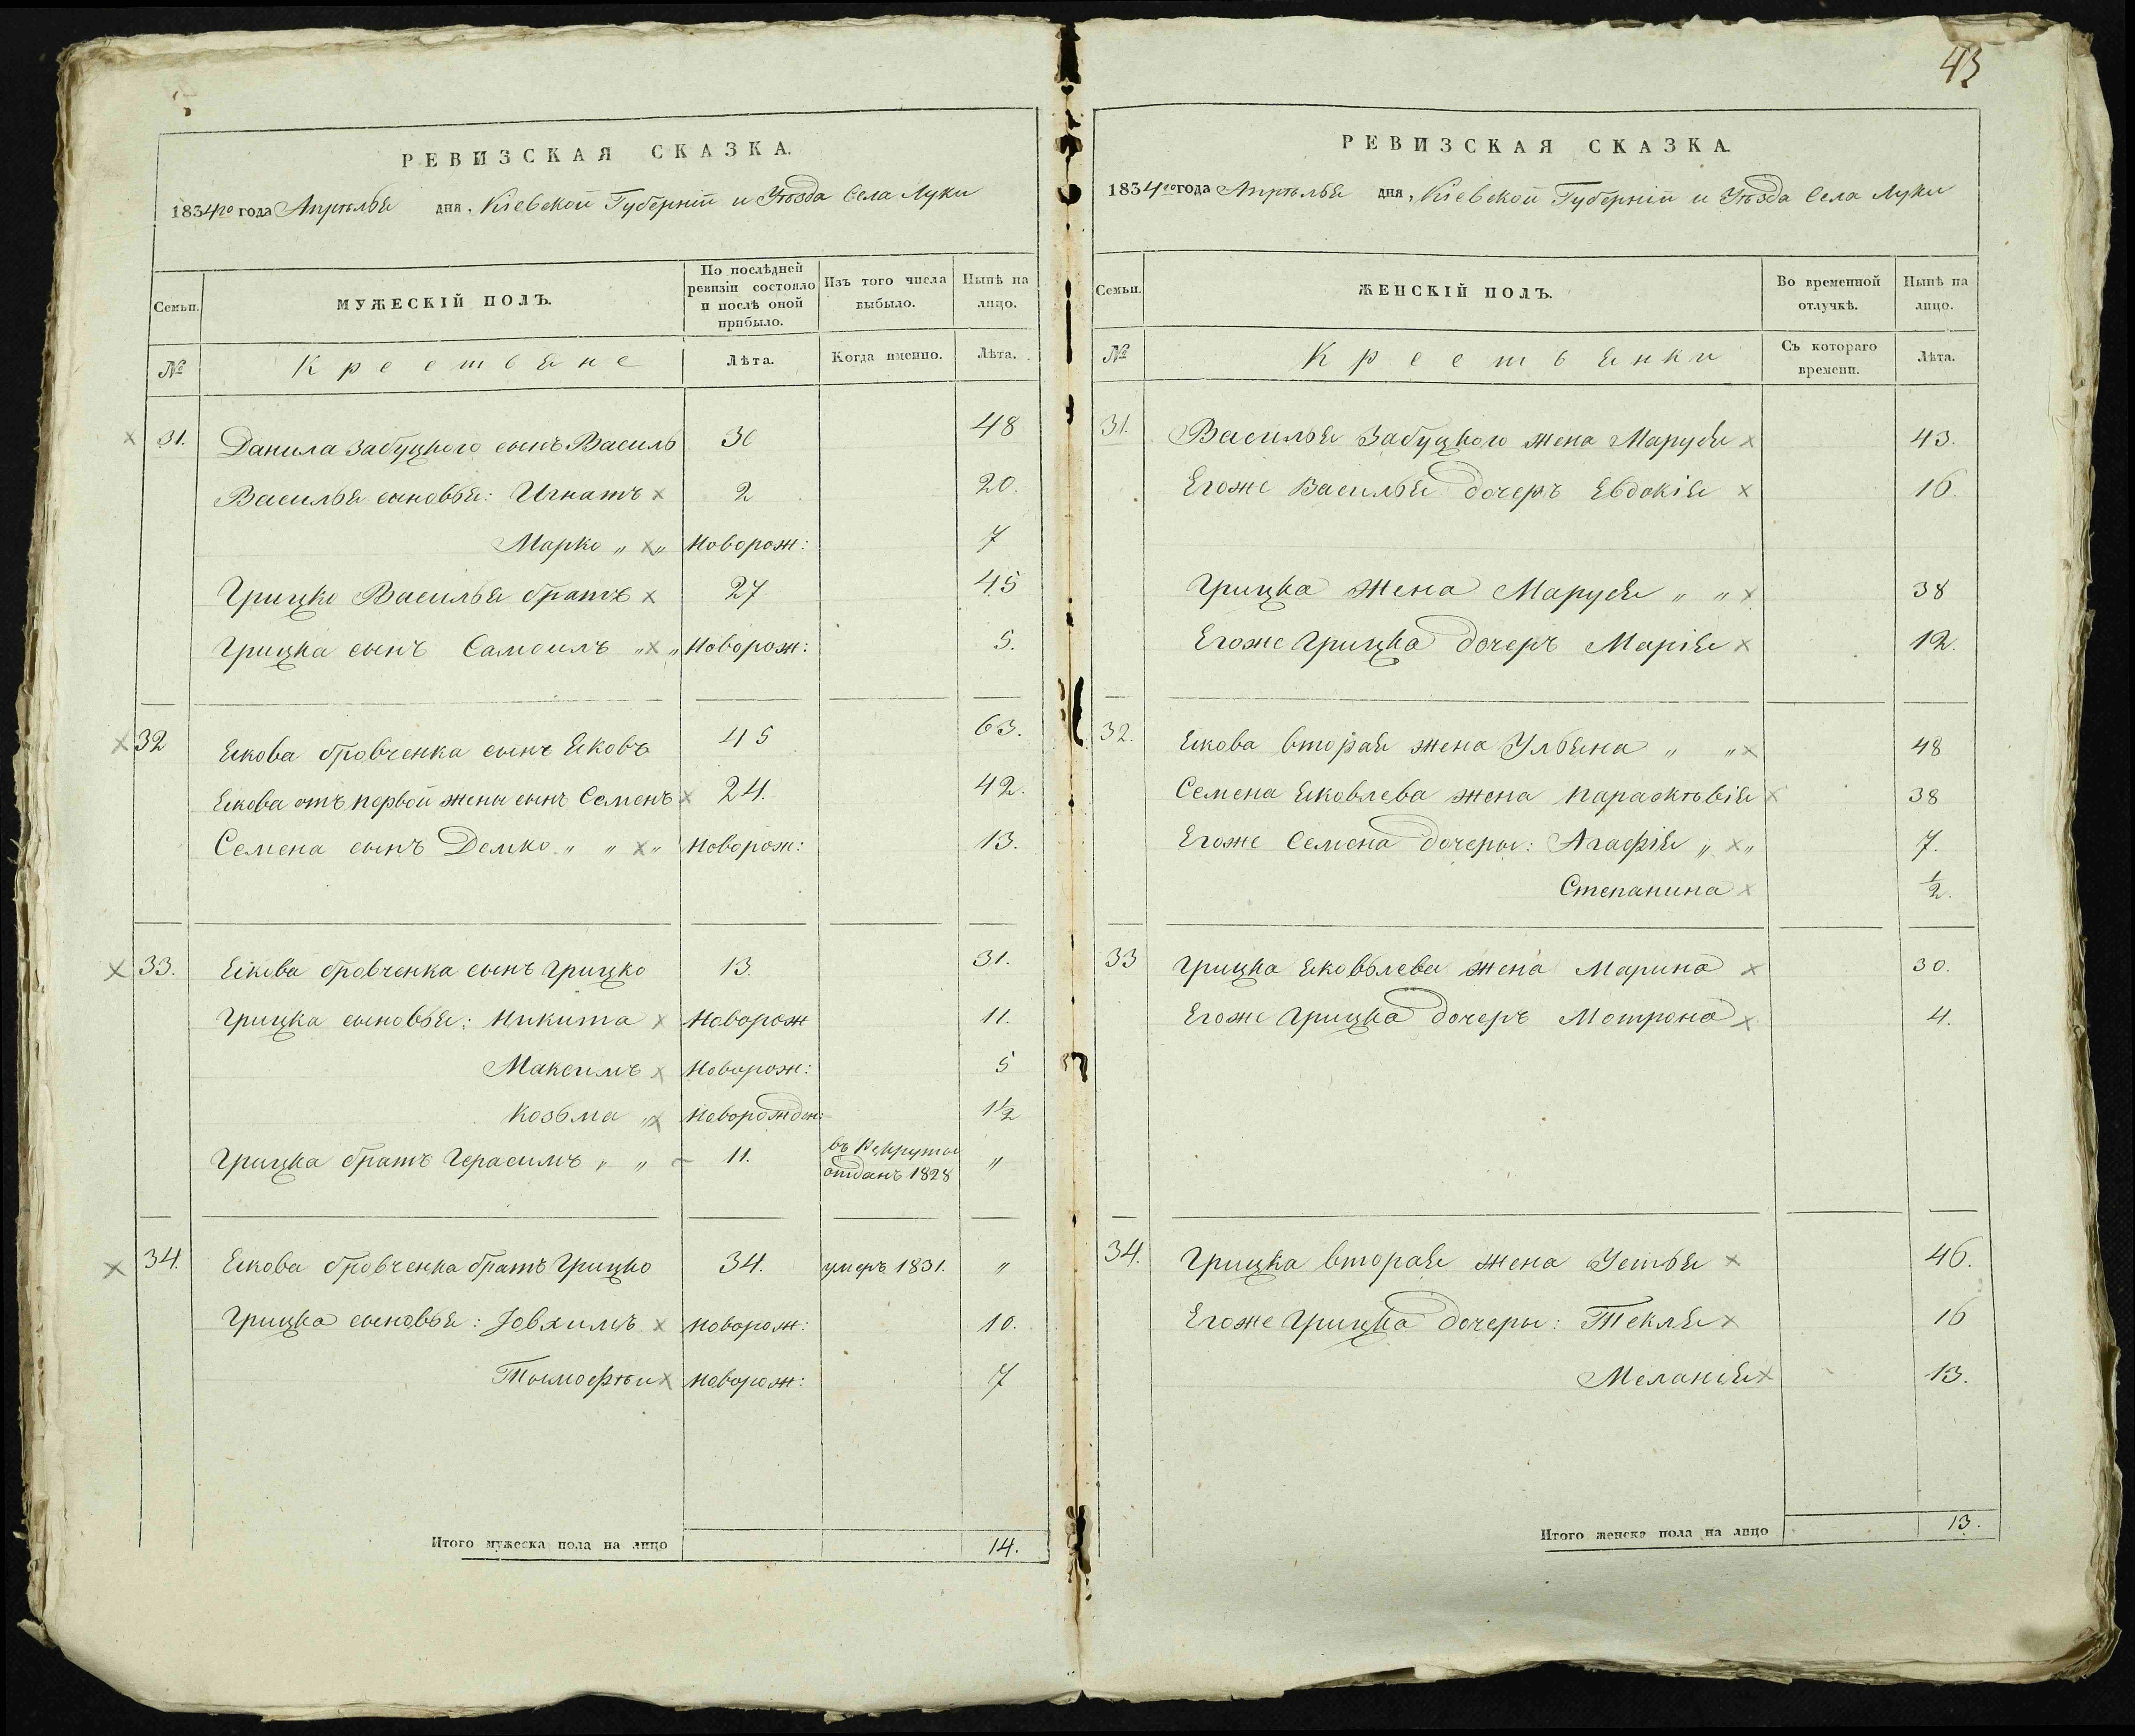 43
РЕВИЗСКАЯ СКАЗКА.
1834го года Апрѣля дня, Кіевской Губерніи и Уѣзда Села Луки
Семьи.
МУЖЕСКІЙ ПОЛЪ.
По послѣдней ревизіи состояло и послѣ оной прибыло.
Изъ того числа выбыло.
Нынѣ на лицо.
№
Крестьяне
Лѣта.
Когда именно.
Лѣта.
31. Данила Забуцкого сынъ Василь 30 48
Василья сыновья: Игнатъ х 2 20.
Марко „ х „ Новорож: 7
Грицко Василья братъ х 27 45
Грицка сынъ Самоилъ „ х „ Новорож: 5.
32 Якова бровченка сынъ Яковъ 45 63.
Якова отъ первой жены сынъ Семенъ х 24. 42.
Семена сынъ Демко „ „ х „ Новорож: 13.
33. Якова бровченка сынъ Грицко 13. 31.
Грицка сыновья: Никита х Новорож 11.
Максимъ х Новорож: 5
Козьма „ х Новорожден: 1½
Грицка братъ Герасимъ „ „ – 11. въ Рекруты отданъ 1828 „
34. Якова бровченка братъ Грицко 34. умеръ 1831. „
Грицка сыновья: Іовхимъ х новорож: 10.
Тимофѣи х новорож: 7
Итого мужеска пола на лицо 14.
РЕВИЗСКАЯ СКАЗКА.
1834го года Апрѣлья дня, Кіевской Губерніи и Уѣзда Села Луки
Семьи.
ЖЕНСКІЙ ПОЛЪ.
Во временной отлучкѣ.
Нынѣ на лицо.
№
Крестьянки
Съ котораго времени.
Лѣта.
31. Василья Забуцкого жена Маруся х 43.
Егоже Василья дочерь Евдокія х 16.
Грицка Жена Маруся „ „ х 38
Егоже Грицка дочерь Марія х 12.
32. Якова вторая жена Ульяна „ „ х 48
Семена Яковлева жена Параскѣвія х 38
Егоже Семена дочеры: Агафія „ х „ 7.
Степанина х ½.
33 Грицка Яковълева жена Марина х 30.
Егоже Грицка дочерь Мотрона х 4.
34. Грицка вторая жена Устья х 46.
Егоже Грицка дочеры: Текля х 16
Меланія х 13.
Итого женска пола на лицо 13.